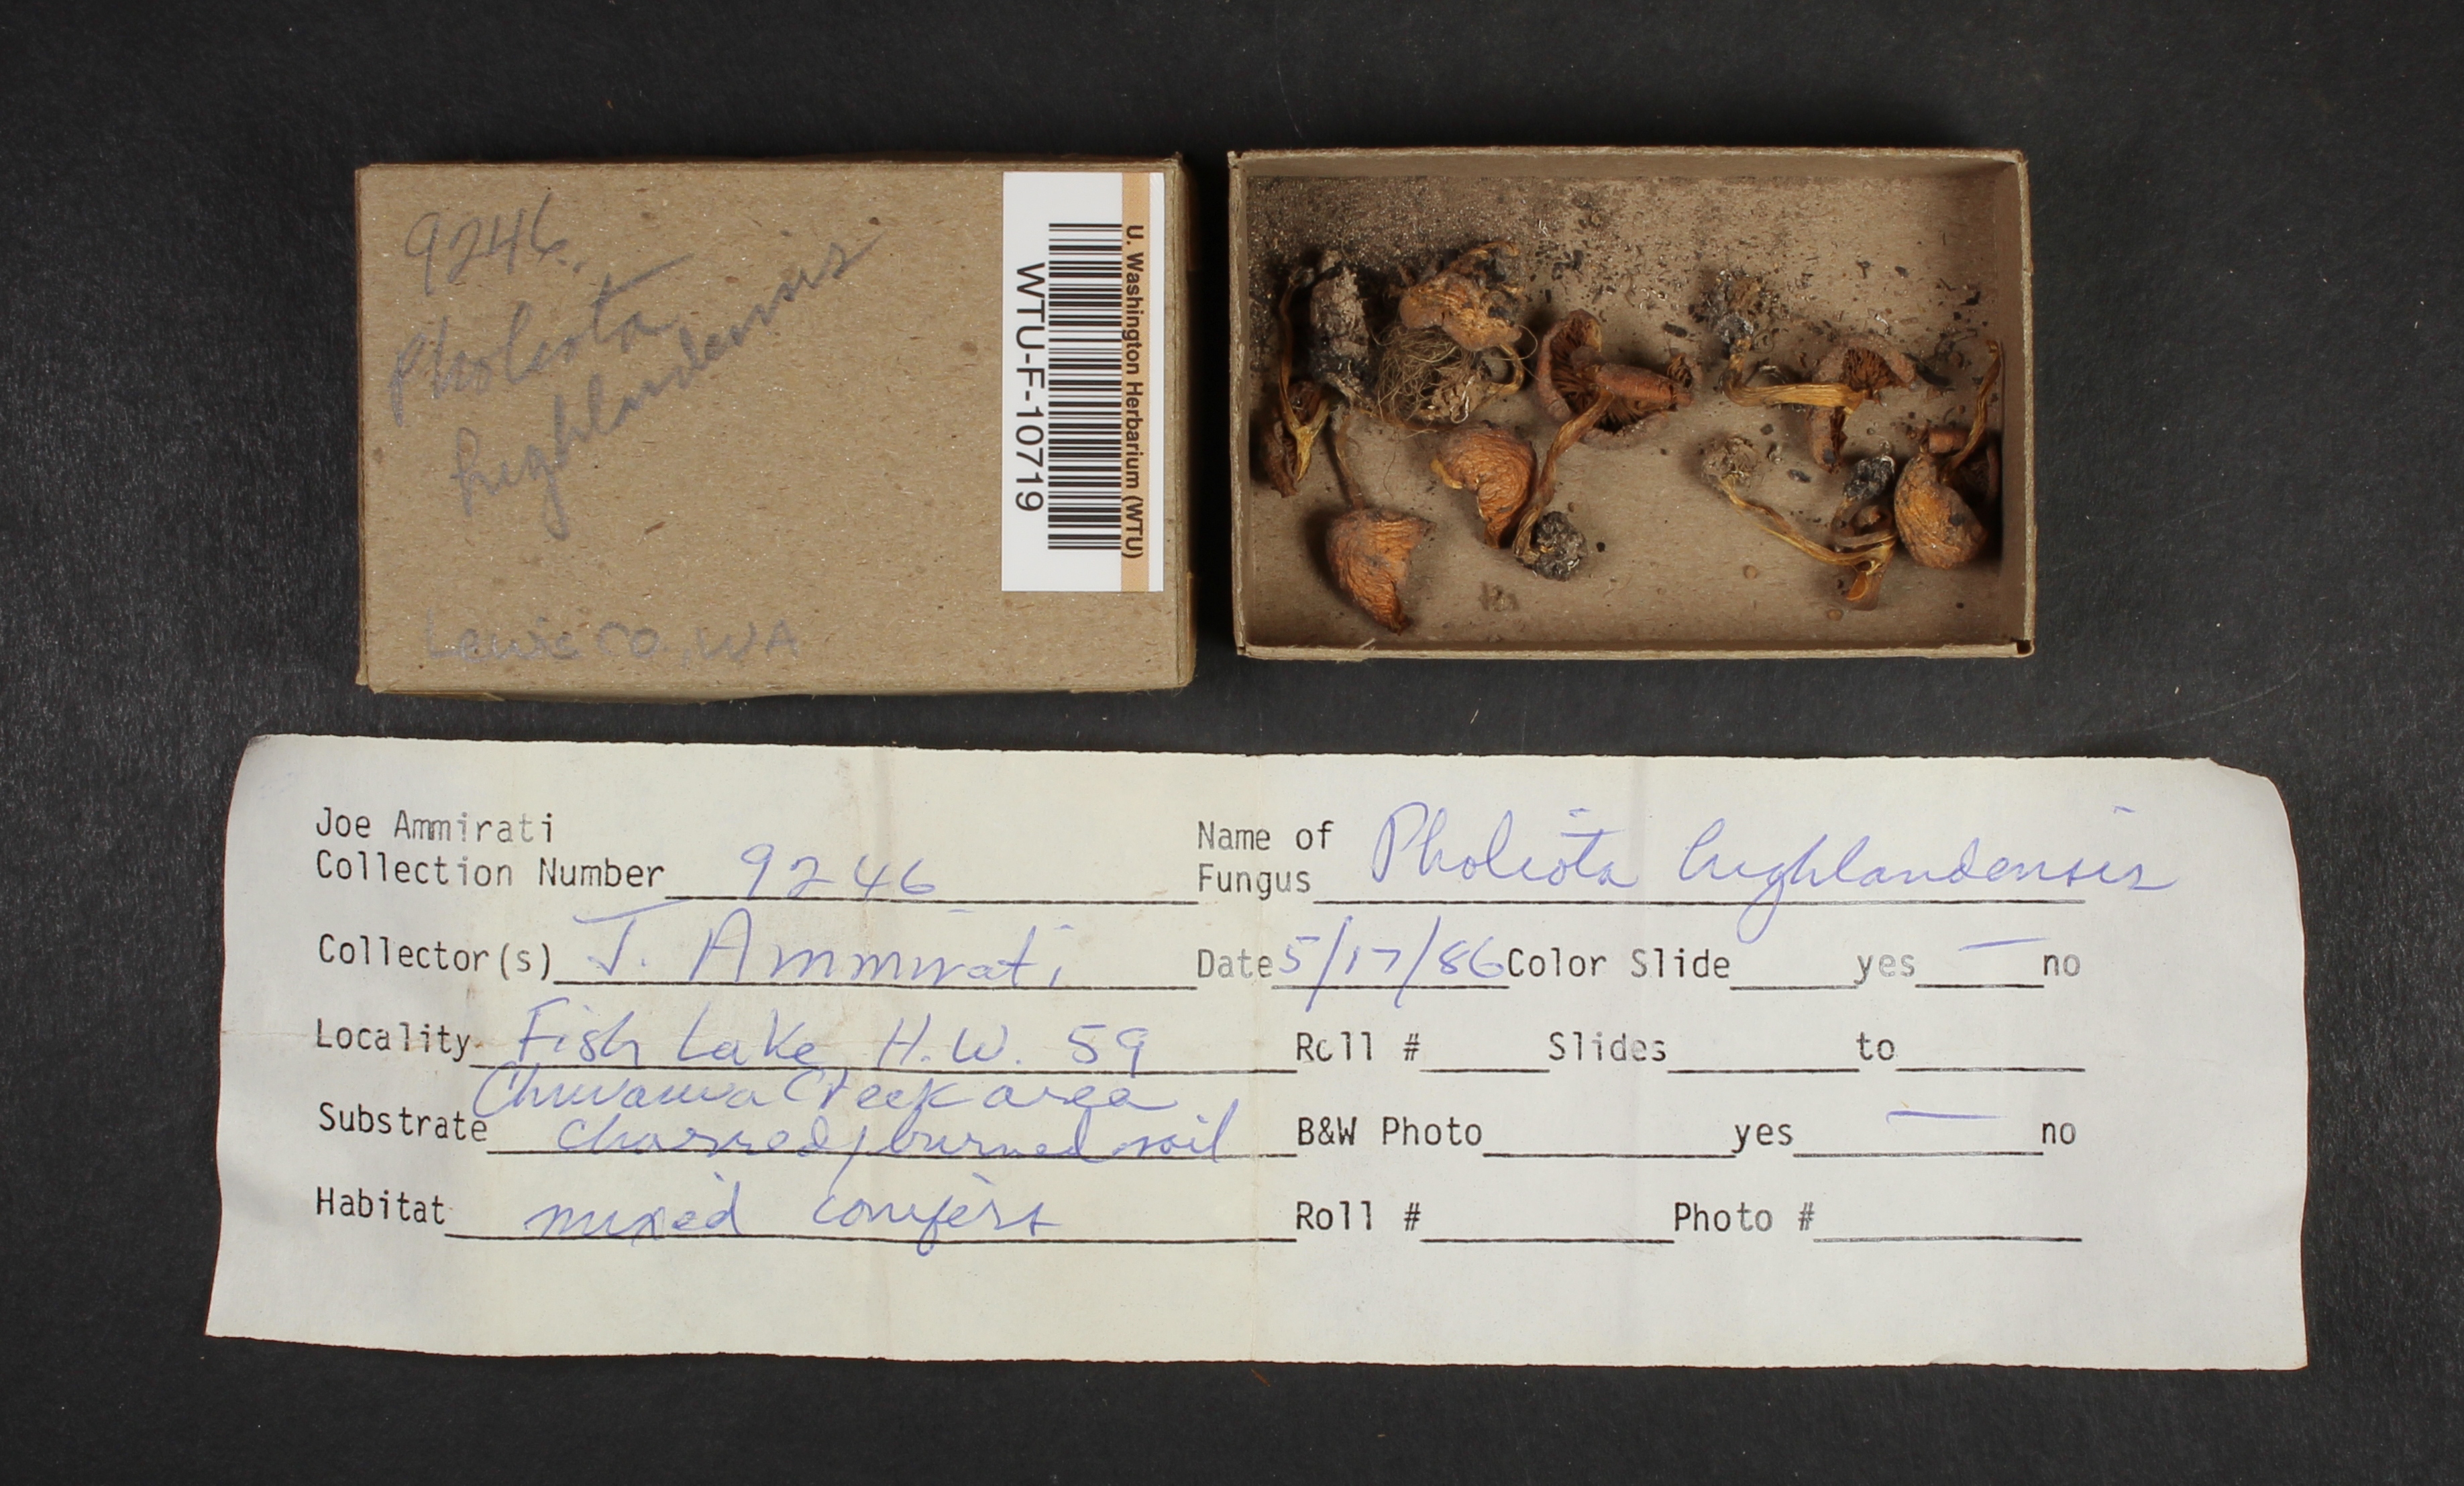 9246
Pholiota
highlandensis
Lewis Co, WA
U. Washington Herbarium (WTU)
WTU-F-10719
Joe Ammirati
Collection Number 9246
Name of
Fungus Pholiota highlandensis
Collector(s) J. Ammirati
Date 5/17/86 Color Slide yes — no
Locality Fish Lake H.W. 59
Roll # Slides to
Chiwawa Creek area
Substrate charred/burned soil
B&W Photo yes — no
Habitat mixed conifers
Roll # Photo #